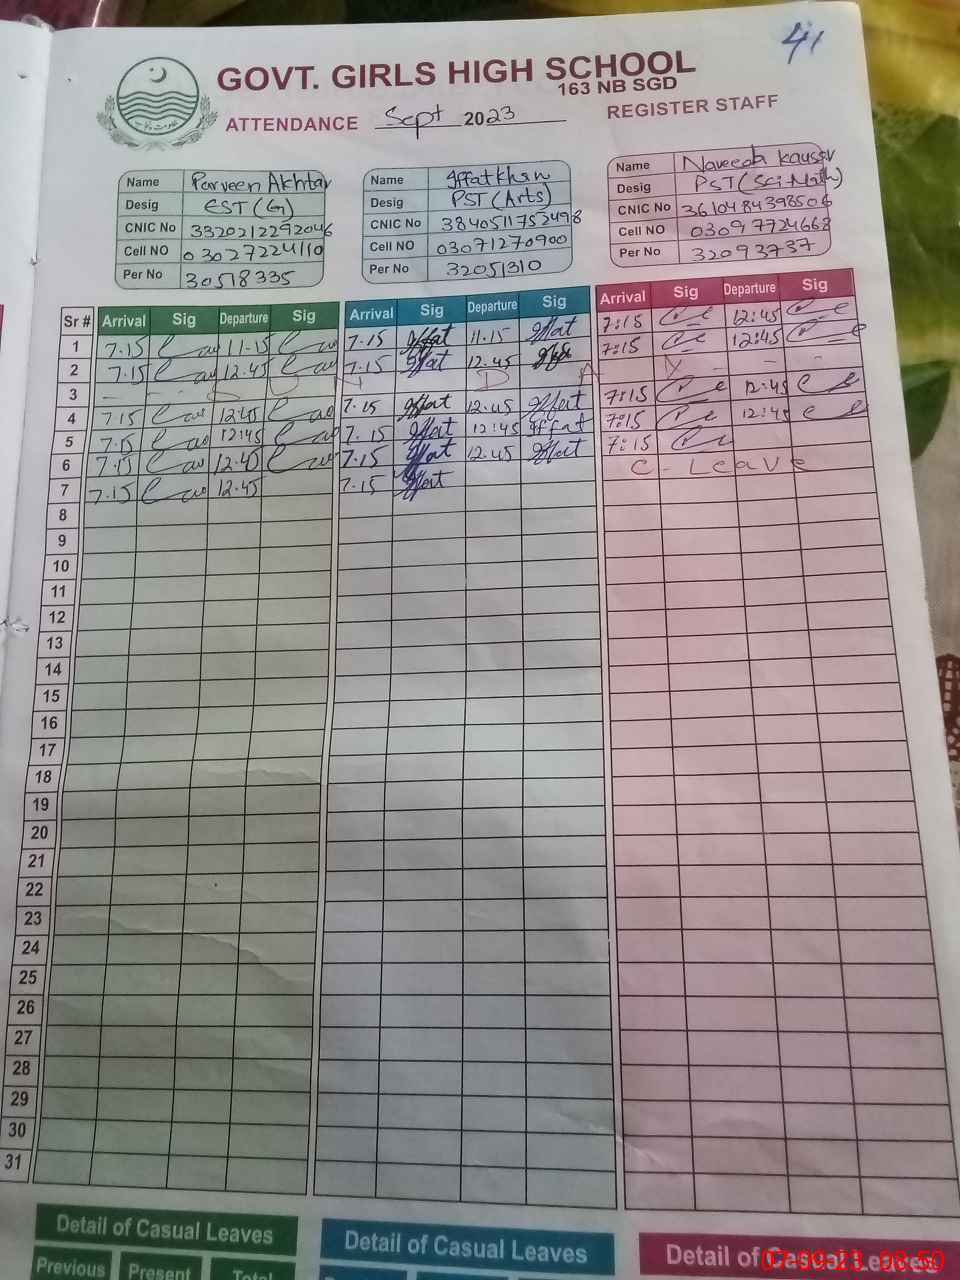 41
GOVT. GIRLS HIGH SCHOOL
163 NB SGD
ATTENDANCE Sept 2023 REGISTER STAFF
Name Parveen Akhtar
Desig EST (G)
CNIC No 3320212292046
Cell NO 03027224110
Per No 30518335
Name Iffat Khan
Desig PST (Arts)
CNIC No 3840511752498
Cell NO 03071270900
Per No 32051310
Name Naveeda Kausar
Desig PST (Sci Math)
CNIC No 3610484398506
Cell NO 03097724668
Per No 32093737
Sr # Arrival Sig Departure Sig Arrival Sig Departure Sig Arrival Sig Departure Sig
1 7.15 11.15 7.15 Iffat 11.15 Iffat 7:15 12:45
2 7.15 12.45 7.15 Iffat 12.45 Iffat 7:15 12:45
3 S U N D A Y
4 7.15 12.45 7.15 Iffat 12.45 Iffat 7:15 12:45
5 7.15 12.45 7.15 Iffat 12.45 Iffat 7:15 12:45
6 7.15 12.45 7.15 Iffat 12.45 Iffat 7:15
7 7.15 12.45 7.15 Iffat C-Leave
8
9
10
11
12
13
14
15
16
17
18
19
20
21
22
23
24
25
26
27
28
29
30
31
Detail of Casual Leaves Detail of Casual Leaves Detail of Casual Leaves
Previous Present Total
07-09-23 08:50